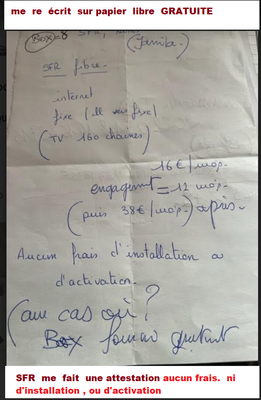 me re écrit sur papier libre GRATUITE
Box 8 SFR,
(Jamila.)
SFR fibre.
internet
fixe (
(TV 160 chaines)
16€/mois.
engagement = 12 mois.
(puis 38€/mois.) après.
Aucun frais d'installation
d'activation.
(au cas où ?
Box gratuit
SFR me fait une attestation aucun frais. ni
d'installation , ou d'activation